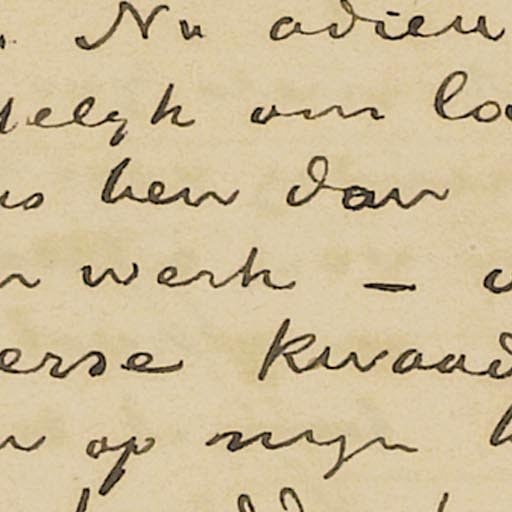 . Nu adieu
delyk om
us ben dan
werk –
erse kwaad
op mijn